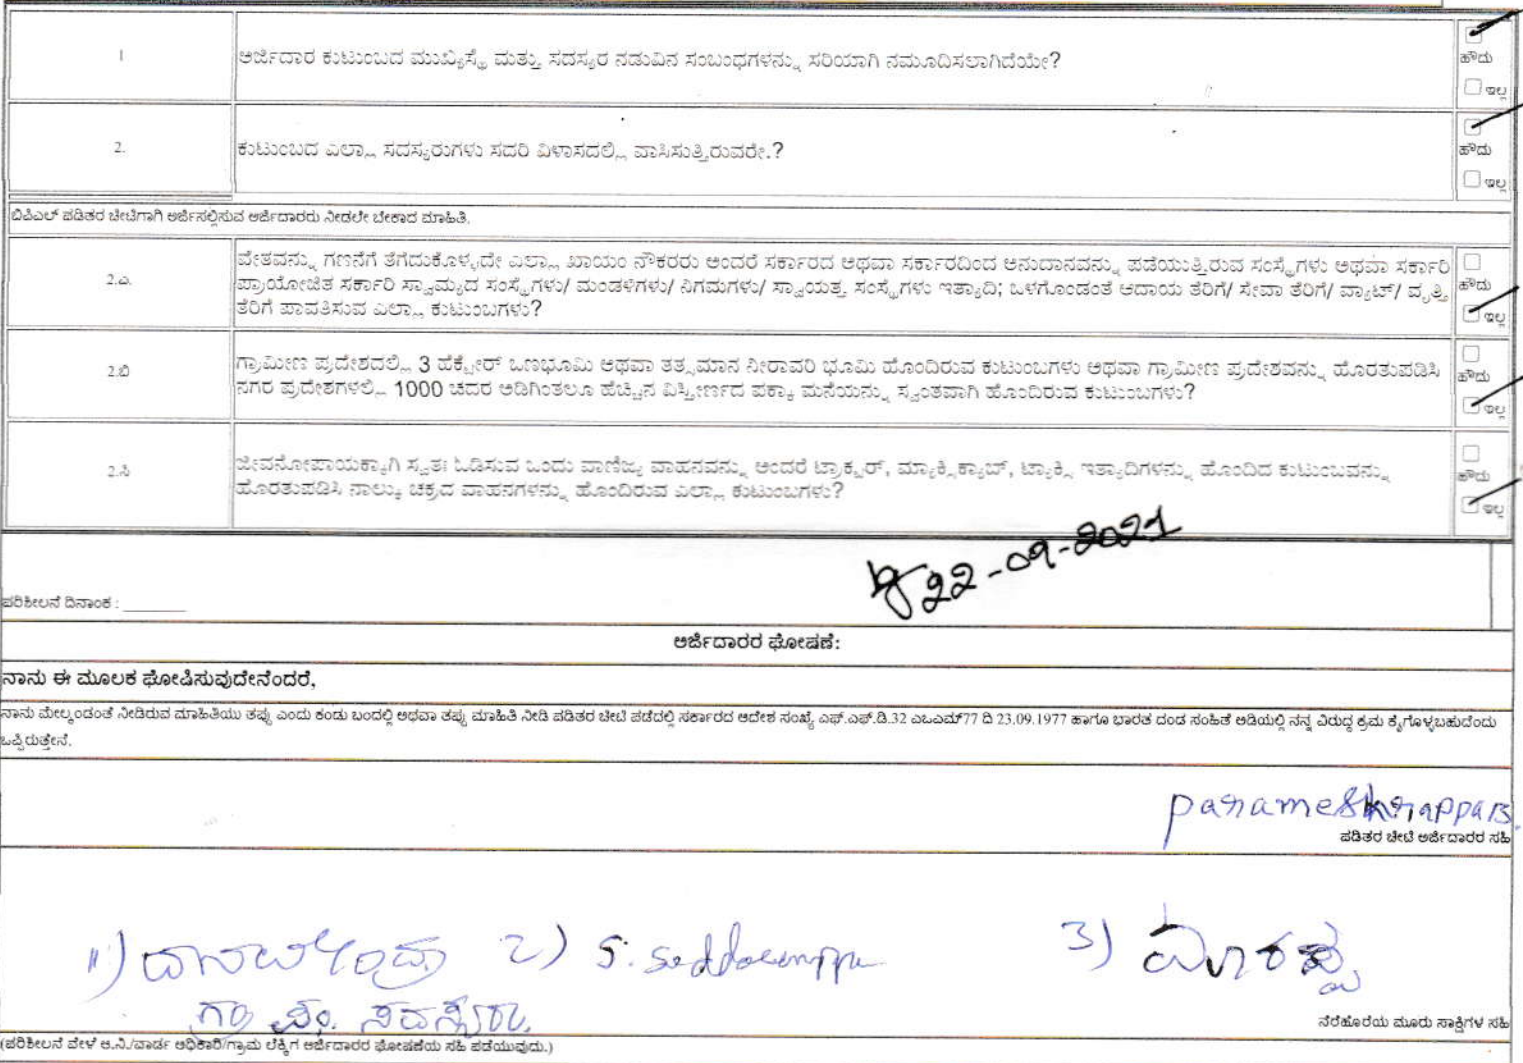 1 ಅರ್ಜಿದಾರ ಕುಟುಂಬದ ಮುಖ್ಯಸ್ಥೆ ಮತ್ತು ಸದಸ್ಯರ ನಡುವಿನ ಸಂಬಂಧಗಳನ್ನು ಸರಿಯಾಗಿ ನಮೂದಿಸಲಾಗಿದೆಯೇ?
ಹೌದು
ಇಲ್ಲ
2. ಕುಟುಂಬದ ಎಲ್ಲಾ ಸದಸ್ಯರುಗಳು ಸದರಿ ವಿಳಾಸದಲ್ಲಿ ವಾಸಿಸುತ್ತಿರುವರೇ.?
ಹೌದು
ಇಲ್ಲ
ಬಿಪಿಎಲ್ ಪಡಿತರ ಚೀಟಿಗಾಗಿ ಅರ್ಜಿಸಲ್ಲಿಸುವ ಅರ್ಜಿದಾರರು ನೀಡಲೇ ಬೇಕಾದ ಮಾಹಿತಿ.
2.ಎ. ವೇತವನ್ನು ಗಣನೆಗೆ ತೆಗೆದುಕೊಳ್ಳದೇ ಎಲ್ಲಾ ಖಾಯಂ ನೌಕರರು ಅಂದರೆ ಸರ್ಕಾರದ ಅಥವಾ ಸರ್ಕಾರದಿಂದ ಅನುದಾನವನ್ನು ಪಡೆಯುತ್ತಿರುವ ಸಂಸ್ಥೆಗಳು ಅಥವಾ ಸರ್ಕಾರಿ
ಪ್ರಾಯೋಜಿತ ಸರ್ಕಾರಿ ಸ್ವಾಮ್ಯದ ಸಂಸ್ಥೆಗಳು/ ಮಂಡಳಿಗಳು/ ನಿಗಮಗಳು/ ಸ್ವಾಯತ್ತ ಸಂಸ್ಥೆಗಳು ಇತ್ಯಾದಿ; ಒಳಗೊಂಡಂತೆ ಆದಾಯ ತೆರಿಗೆ/ ಸೇವಾ ತೆರಿಗೆ/ ವ್ಯಾಟ್/ ವೃತ್ತಿ
ತೆರಿಗೆ ಪಾವತಿಸುವ ಎಲ್ಲಾ ಕುಟುಂಬಗಳು?
ಹೌದು
ಇಲ್ಲ
2.ಬಿ ಗ್ರಾಮೀಣ ಪ್ರದೇಶದಲ್ಲಿ 3 ಹೆಕ್ಟೇರ್ ಒಣಭೂಮಿ ಅಥವಾ ತತ್ಸಮಾನ ನೀರಾವರಿ ಭೂಮಿ ಹೊಂದಿರುವ ಕುಟುಂಬಗಳು ಅಥವಾ ಗ್ರಾಮೀಣ ಪ್ರದೇಶವನ್ನು ಹೊರತುಪಡಿಸಿ
ನಗರ ಪ್ರದೇಶಗಳಲ್ಲಿ 1000 ಚದರ ಅಡಿಗಿಂತಲೂ ಹೆಚ್ಚಿನ ವಿಸ್ತೀರ್ಣದ ಪಕ್ಕಾ ಮನೆಯನ್ನು ಸ್ವಂತವಾಗಿ ಹೊಂದಿರುವ ಕುಟುಂಬಗಳು?
ಹೌದು
ಇಲ್ಲ
2.ಸಿ ಜೀವನೋಪಾಯಕ್ಕಾಗಿ ಸ್ವತಃ ಓಡಿಸುವ ಒಂದು ವಾಣಿಜ್ಯ ವಾಹನವನ್ನು ಅಂದರೆ ಟ್ರಾಕ್ಟರ್, ಮ್ಯಾಕ್ಸಿಕ್ಯಾಬ್, ಟ್ಯಾಕ್ಸಿ ಇತ್ಯಾದಿಗಳನ್ನು ಹೊಂದಿದ ಕುಟುಂಬವನ್ನು
ಹೊರತುಪಡಿಸಿ ನಾಲ್ಕು ಚಕ್ರದ ವಾಹನಗಳನ್ನು ಹೊಂದಿರುವ ಎಲ್ಲಾ ಕುಟುಂಬಗಳು?
ಹೌದು
ಇಲ್ಲ
22-09-2021
ಪರಿಶೀಲನೆ ದಿನಾಂಕ : ______
ಅರ್ಜಿದಾರರ ಘೋಷಣೆ:
ನಾನು ಈ ಮೂಲಕ ಘೋಷಿಸುವುದೇನೆಂದರೆ,
ನಾನು ಮೇಲ್ಕಂಡಂತೆ ನೀಡಿರುವ ಮಾಹಿತಿಯು ತಪ್ಪು ಎಂದು ಕಂಡು ಬಂದಲ್ಲಿ ಅಥವಾ ತಪ್ಪು ಮಾಹಿತಿ ನೀಡಿ ಪಡಿತರ ಚೀಟಿ ಪಡೆದಲ್ಲಿ ಸರ್ಕಾರದ ಆದೇಶ ಸಂಖ್ಯೆ ಎಫ್.ಎಫ್.ಡಿ.32 ಎಒಎಮ್77 ದಿ 23.09.1977 ಹಾಗೂ ಭಾರತ ದಂಡ ಸಂಹಿತೆ ಅಡಿಯಲ್ಲಿ ನನ್ನ ವಿರುದ್ಧ ಕ್ರಮ ಕೈಗೊಳ್ಳಬಹುದೆಂದು
ಒಪ್ಪಿರುತ್ತೇನೆ.
ಪಡಿತರ ಚೀಟಿ ಅರ್ಜಿದಾರರ ಸಹಿ
1) 2) S. 3)
ಗ್ರಾ ಪಂ. ಸದಸ್ಯರು
ನೆರೆಹೊರೆಯ ಮೂರು ಸಾಕ್ಷಿಗಳ ಸಹಿ
(ಪರಿಶೀಲನೆ ವೇಳೆ ಆ.ನಿ./ವಾರ್ಡ್ ಅಧಿಕಾರಿ/ಗ್ರಾಮ ಲೆಕ್ಕಿಗ ಅರ್ಜಿದಾರರ ಘೋಷಣೆಯ ಸಹಿ ಪಡೆಯುವುದು.)